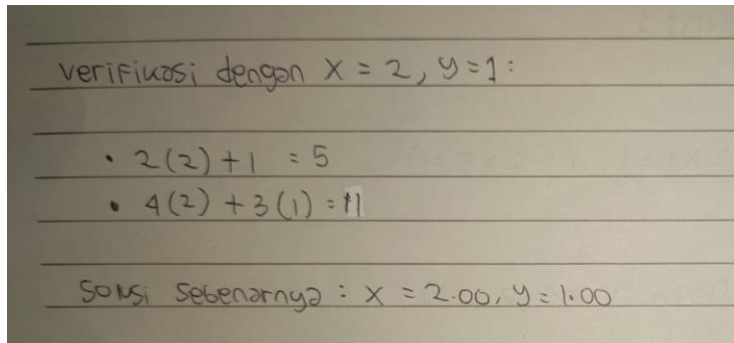 Verifikasi dengan x = 2, y = 1:
• 2(2) + 1 = 5
• 4(2) + 3(1) = 11
Solusi sebenarnya : x = 2.00, y = 1.00